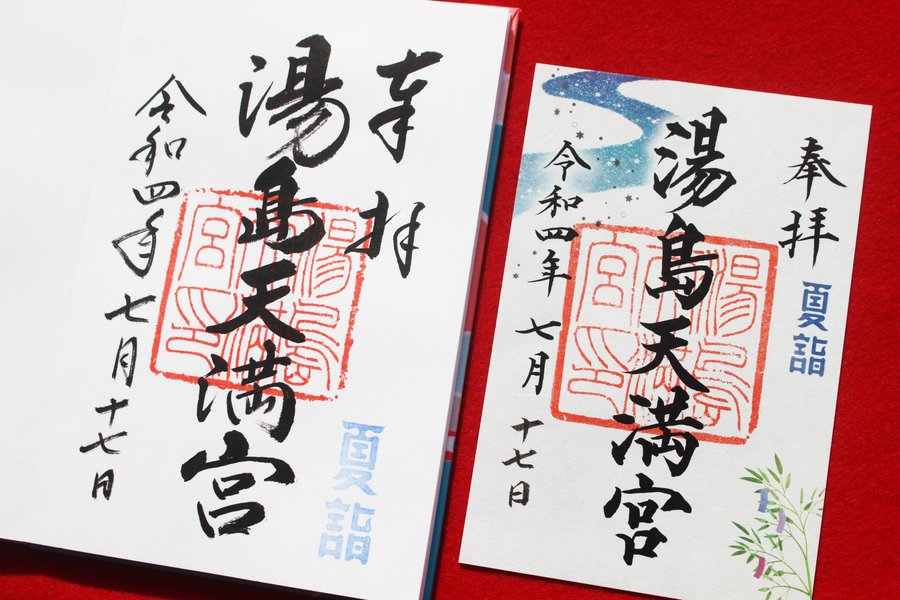 奉拝
夏詣
湯島天満宮
令和四年七月十七日
奉拝
夏詣
湯島天満宮
令和四年七月十七日